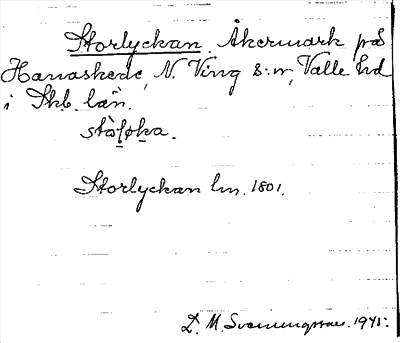 Storlyckan. Åkermark på
Hanaskede, N. Ving s:n, Valle hd
i Skb. län.
Storlyckan lm. 1801.
D. M. Svenningsson. 1941.